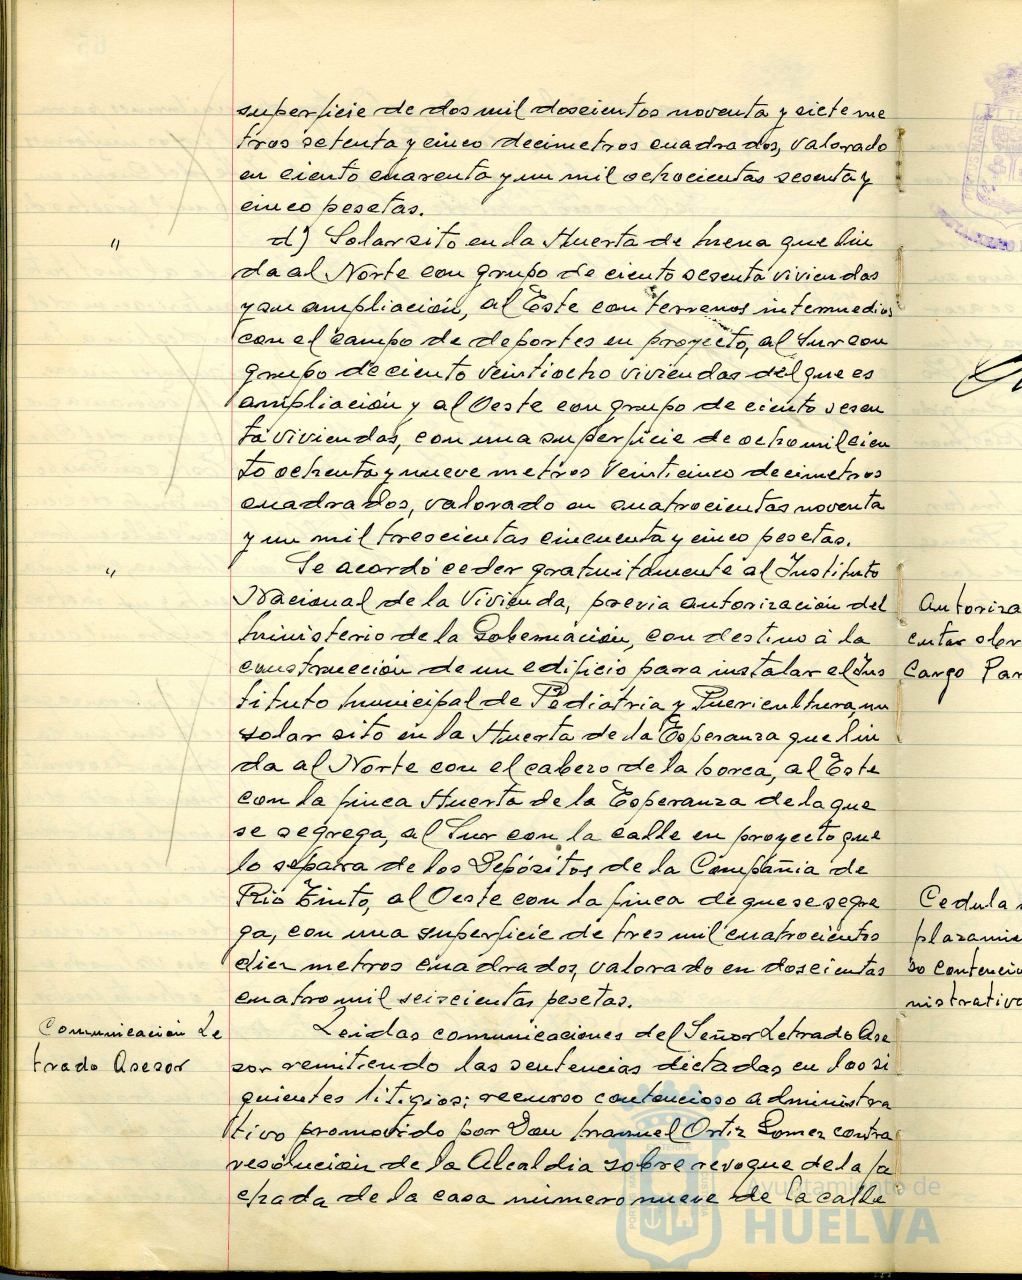 superficie de dos mil doscientos noventa y siete me
tros setenta y cinco decimetros cuadrados, valorado
en ciento cuarenta y un mil ochocientas sesenta y
cinco pesetas.
" d) Solar sito en la Huerta de Mena que lin
da al Norte con grupo de ciento sesenta viviendas
y su ampliación, al Este con terrenos intermedios
con el campo de deportes en proyecto, al Sur con
grupo de ciento veintiocho viviendas del que es
ampliación y al Oeste con grupo de ciento sesen
ta viviendas, con una superficie de ocho mil cien
to ochenta y nueve metros veinticinco decimetros
cuadrados, valorado en cuatrocientas noventa
y un mil trescientas cincuenta y cinco pesetas.
" Se acordó ceder gratuitamente al Instituto
Nacional de la Vivienda, previa autorización del
Ministerio de la Gobernación, con destino á la
construcción de un edificio para instalar el Ins
tituto Municipal de Pediatria y Puericultura, un
solar sito en la Huerta de la Esperanza que lin
da al Norte con el cabezo de la horca, al Este
con la finca Huerta de la Esperanza de la que
se segrega, al Sur con la calle en proyecto que
lo separa de los Depósitos de la Compañia de
Rio Tinto, al Oeste con la finca de que se segre
ga, con una superficie de tres mil cuatrocientos
diez metros cuadrados, valorado en doscientas
cuatro mil seiscientas pesetas.
Comunicación Le
trado Asesor
Leidas comunicaciones del Señor Letrado Ase
sor remitiendo las sentencias dictadas en los si
guientes litigios; recurso contencioso administra
tivo promovido por Don Manuel Ortiz Gomez contra
resolución de la Alcaldia sobre revoque de la fa
chada de la casa número nueve de la calle
Autoriza
Cargo Par
Cedula
plazamie
so contencio
nistrativo
Ayuntamiento de
HUELVA